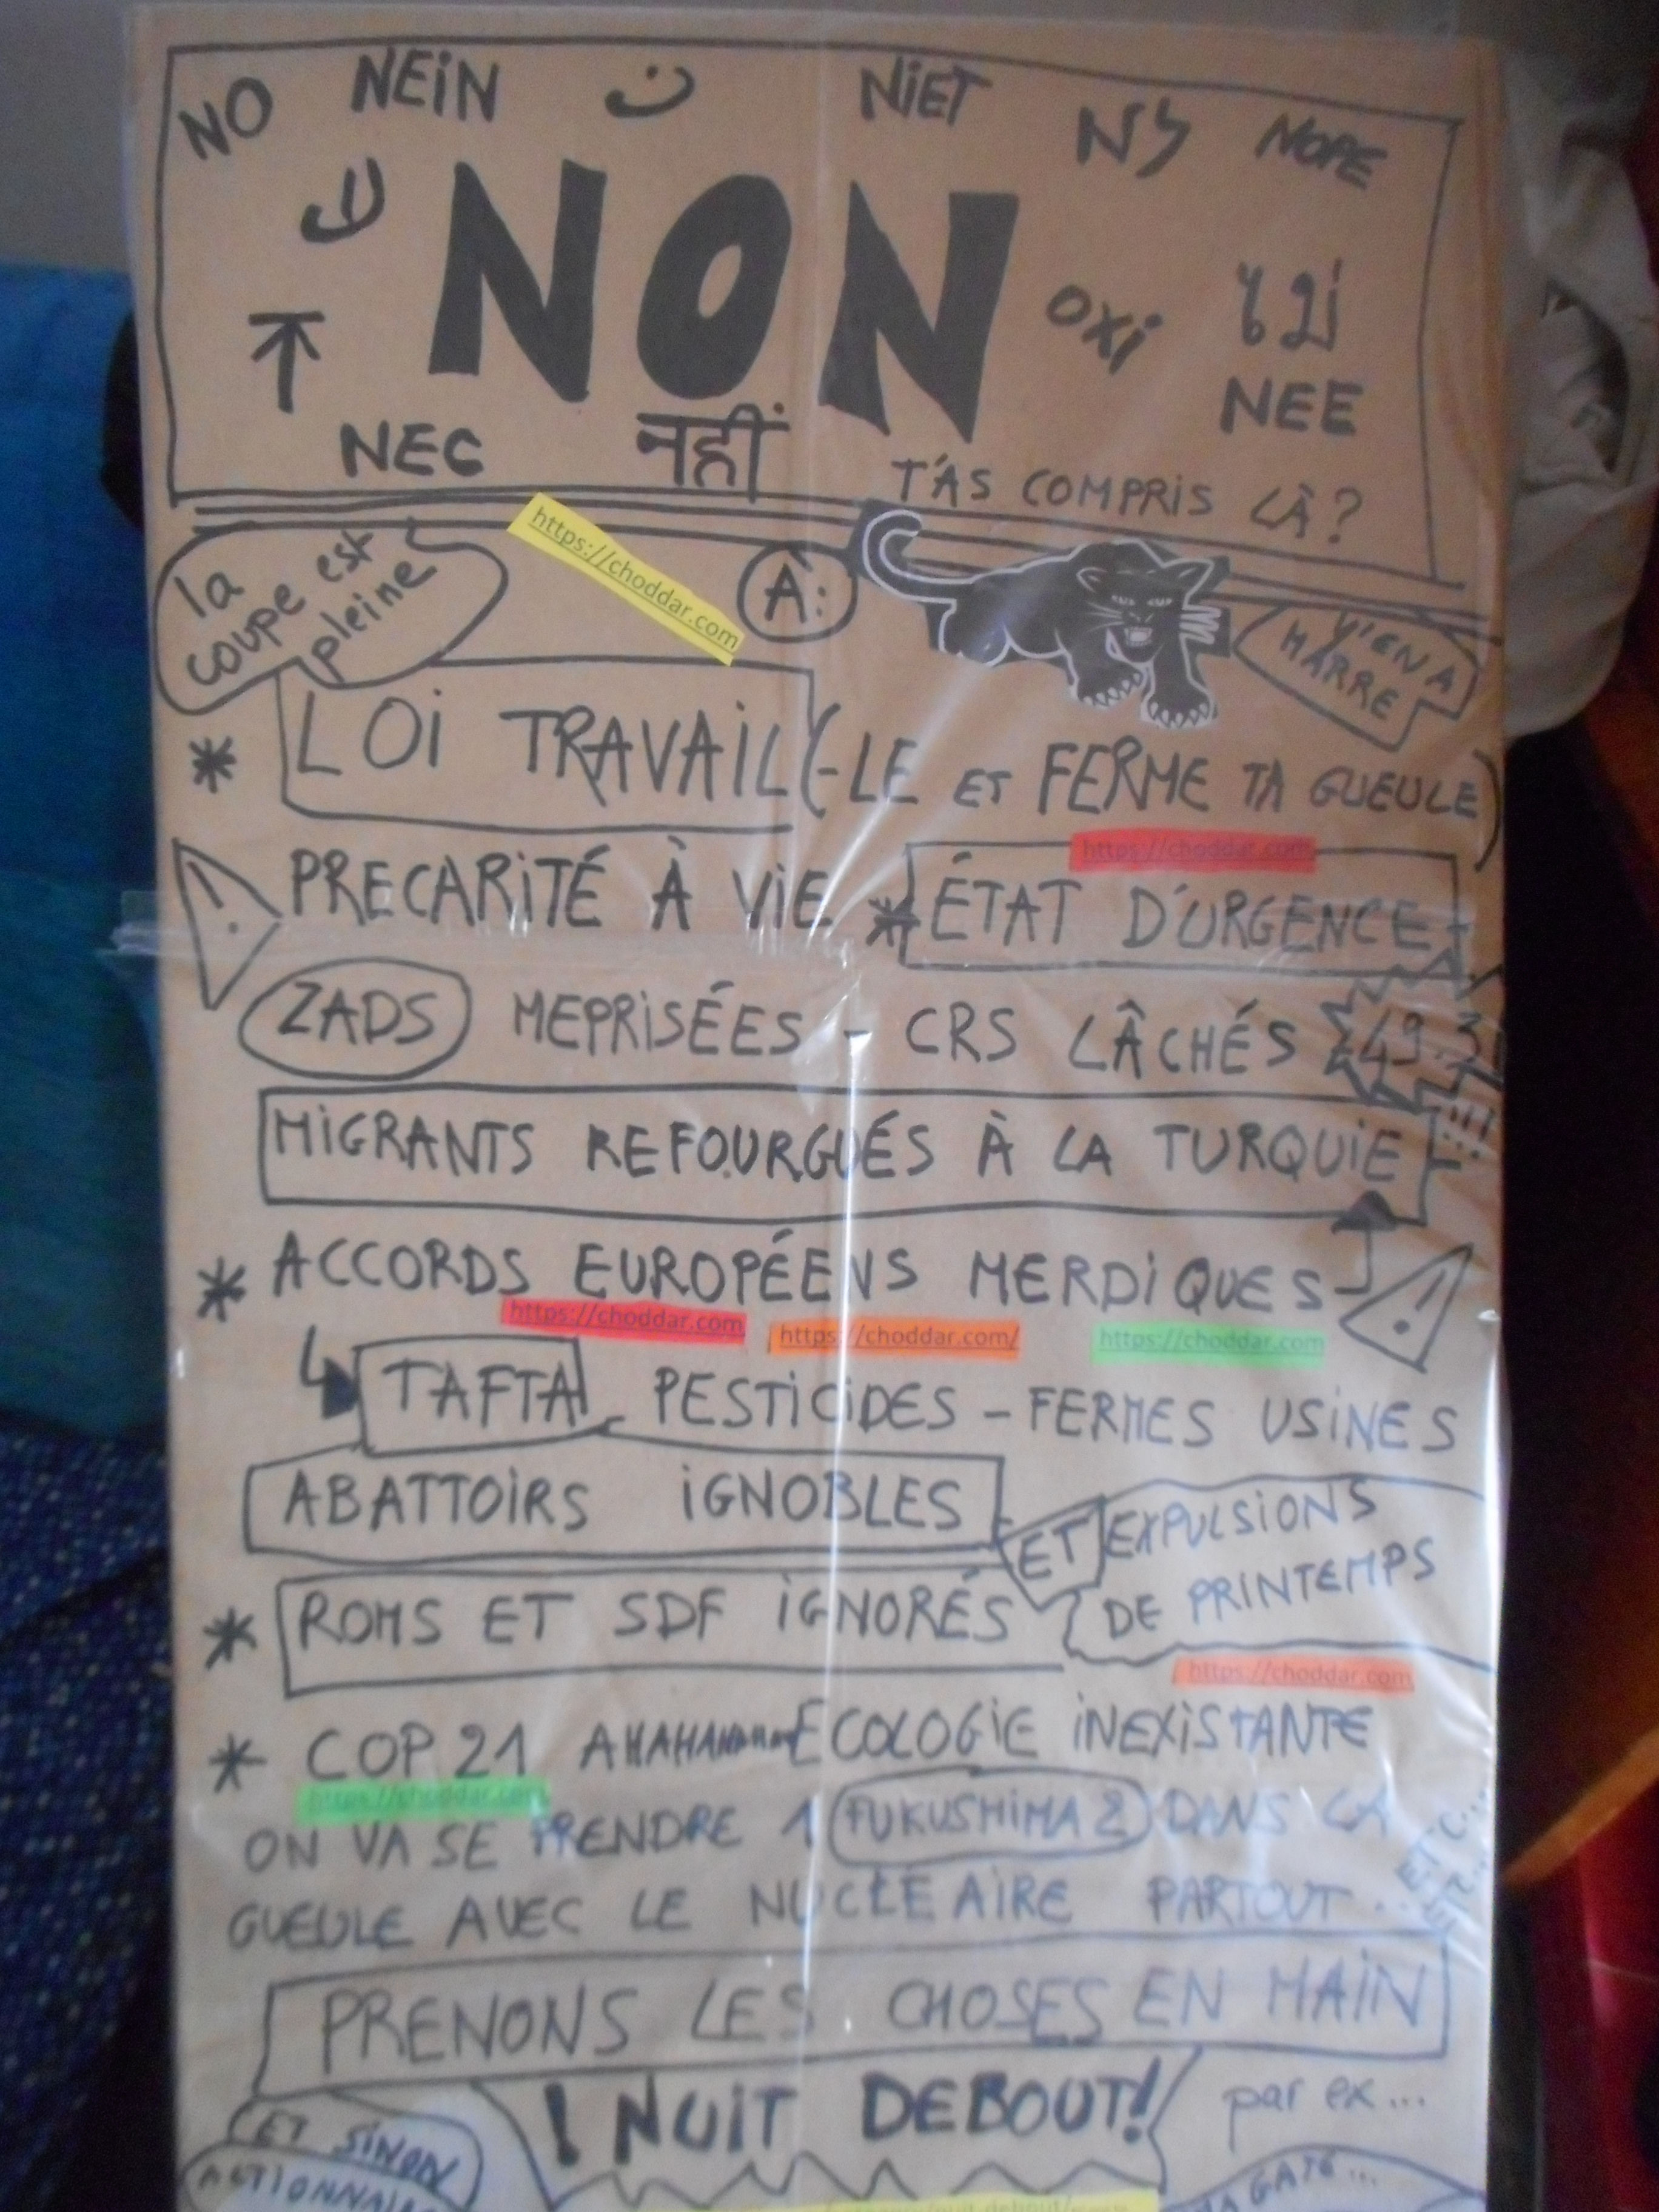 NO NEiN NiET NOPE
NON
OXi ไม่
NEE
NEC नहीं
T'AS COMPRiS LÀ?
la
coupe est
pleine
https://choddar.com
A:
Y'EN A
MARRE
* LOi TRAVAiL(-LE ET FERME TA GUEULE)
https://choddar.com
PRECARiTÉ À ViE * ÉTAT D'URGENCE
ZADS MEPRiSÉES - CRS LÂCHÉS 49.3
!!!
MiGRANTS REFOURGUÉS À LA TURQUiE
* ACCORDS EUROPÉENS MERDiQUES
https://choddar.com https://choddar.com/ https://choddar.com
TAFTA PESTiCiDES - FERMES USiNES
ABATTOiRS iGNOBLES
ET EXPULSiONS
DE PRiNTEMPS
* ROMS ET SDF iGNORÉS
https://choddar.com
* COP 21 AHAHAHAHAHAH ECOLOGiE iNEXiSTANTE
https://choddar.com
ON VA SE PRENDRE 1 FUKUSHiMA 2 DANS LA
GUEULE AVEC LE NUCLÉAiRE PARTOUT...
ETC...
PRENONS LES CHOSES EN MAiN
! NUiT DEBOUT! par ex...
ET SiNON